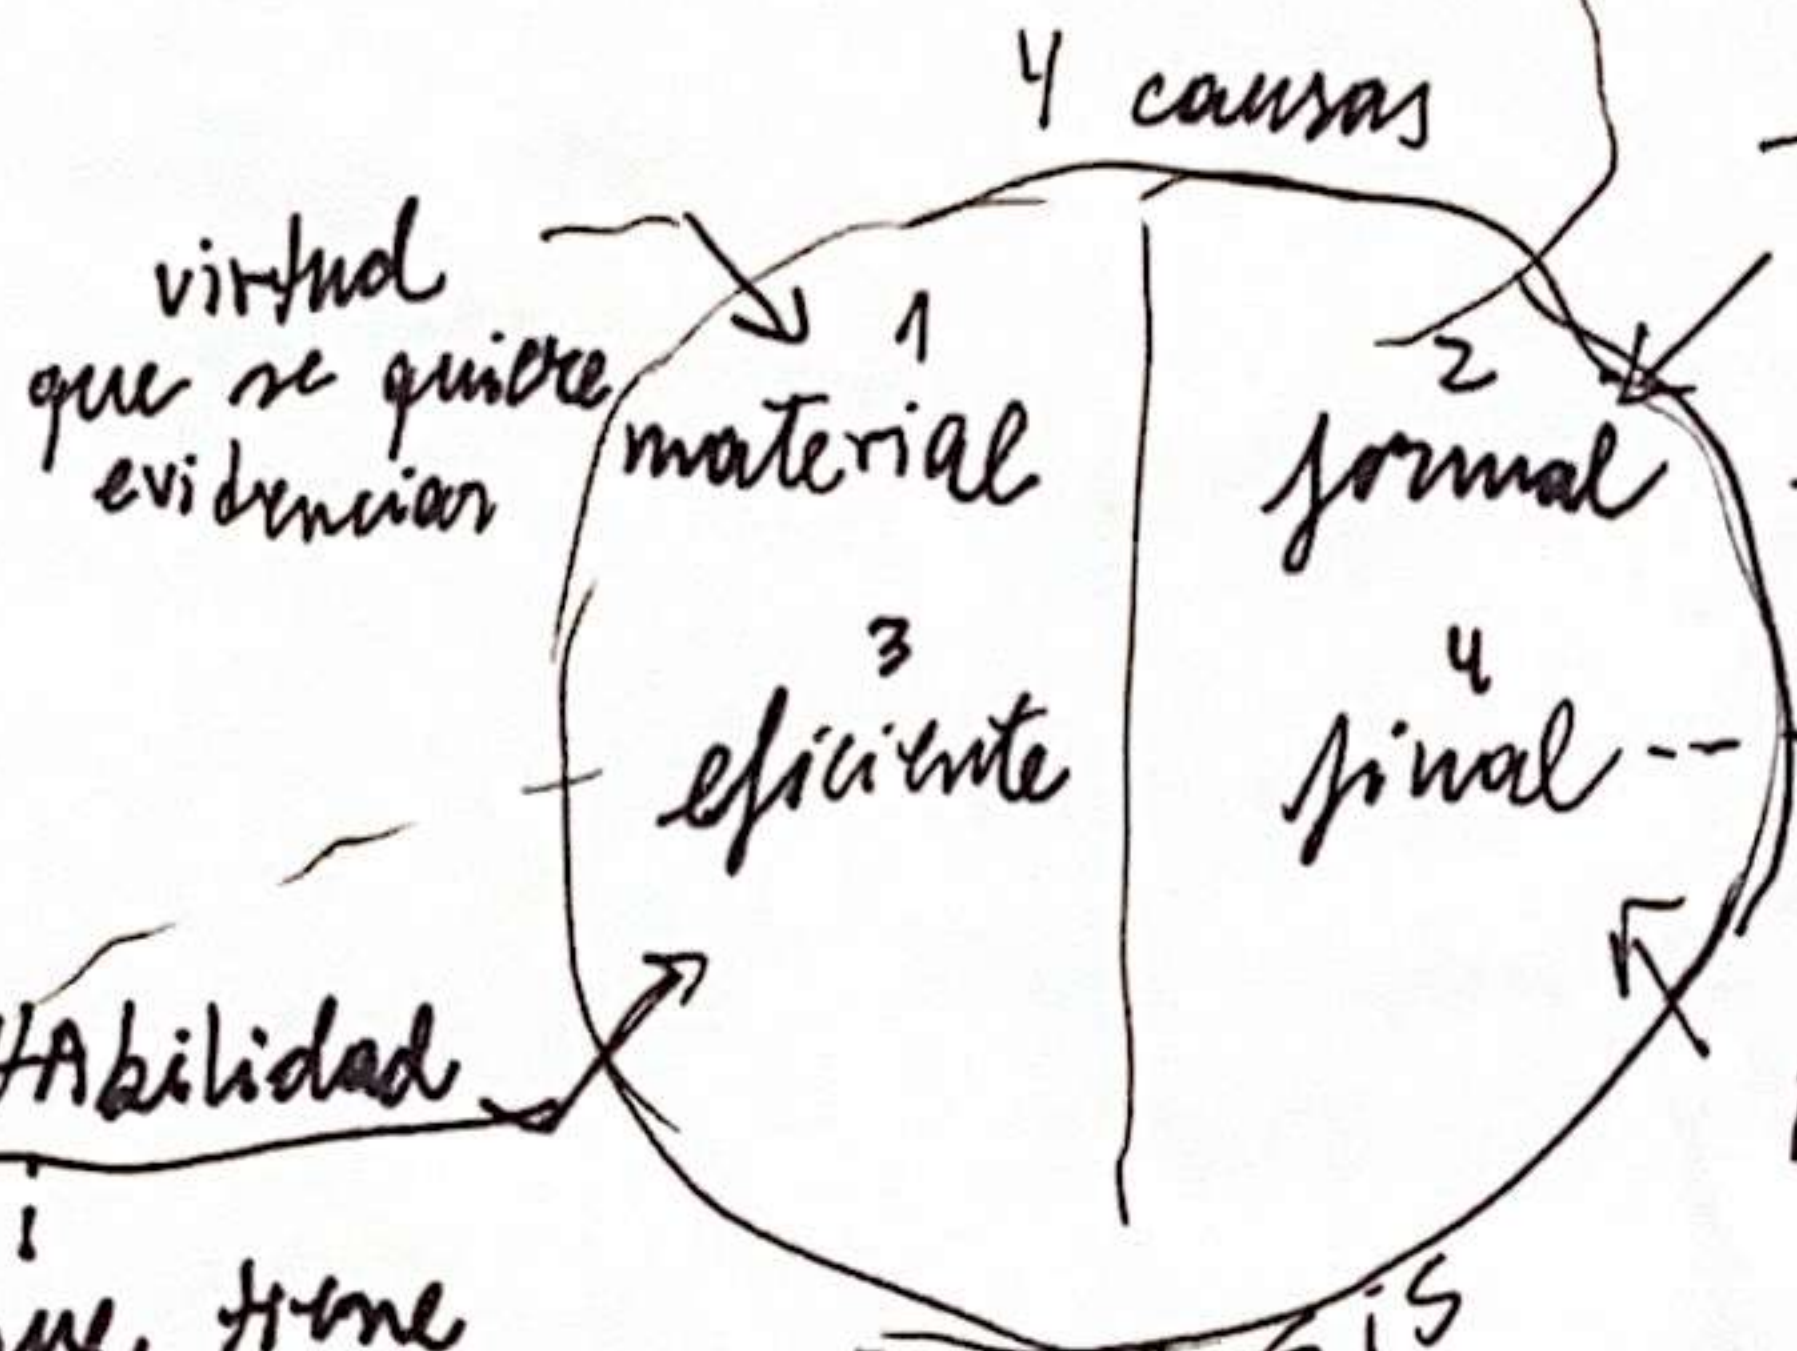 4 causas
virtud
que se quiere
evidenciar
1
material
2
formal
3
eficiente
4
final
tAbilidad
tiene